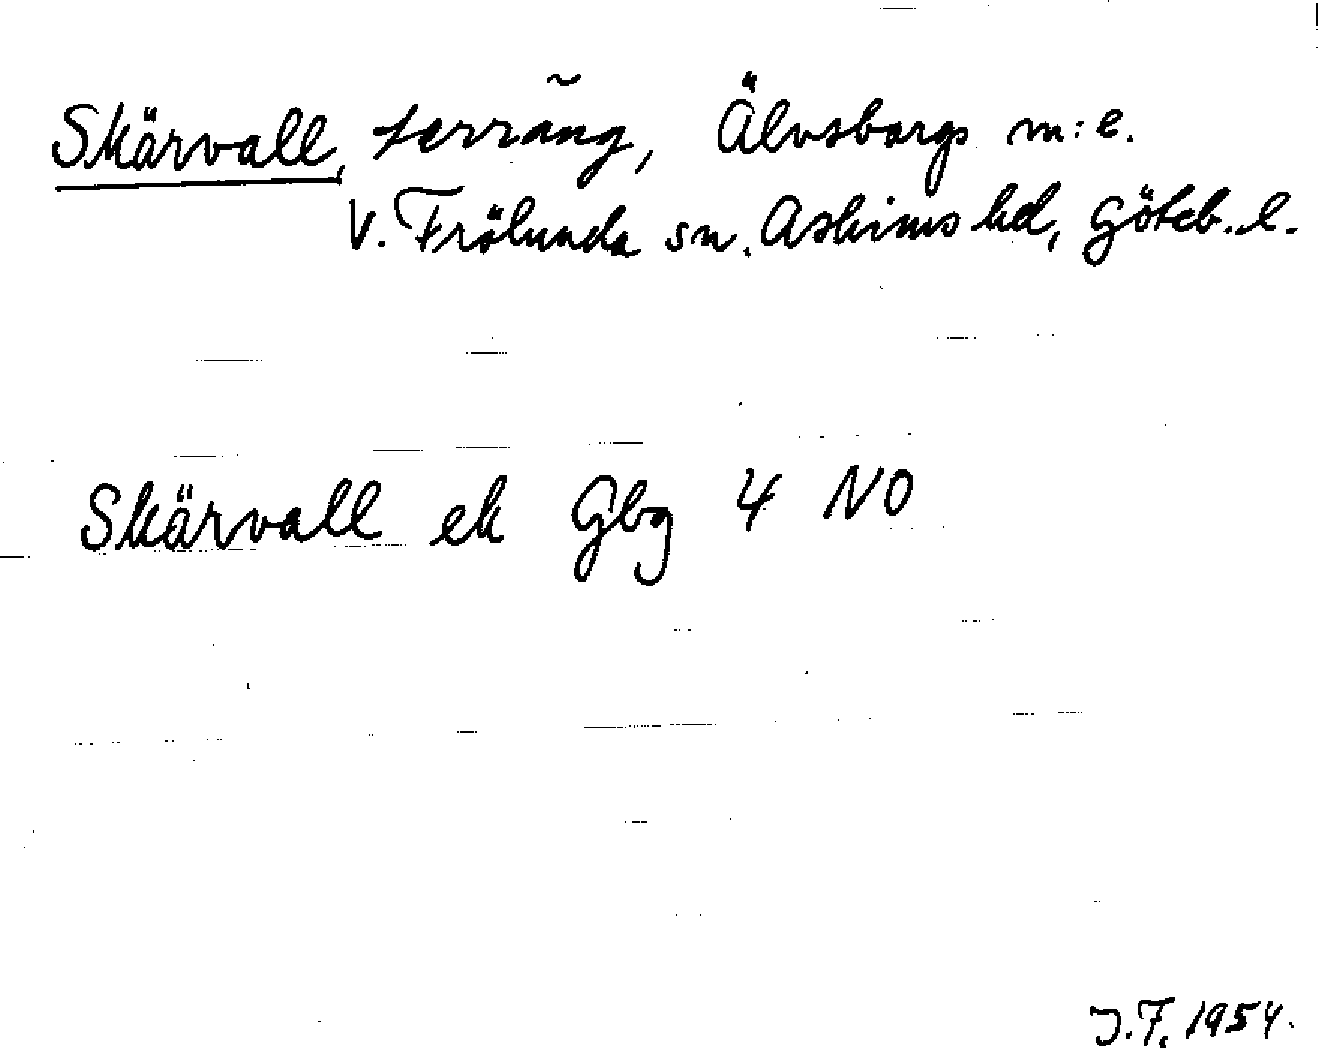 Skärvall, terräng, Älvsborgs m:e.
V. Frölunda sn. Askims hd, Göteb. l.
Skärvall ek Gbg 4 NO
J.F. 1954.